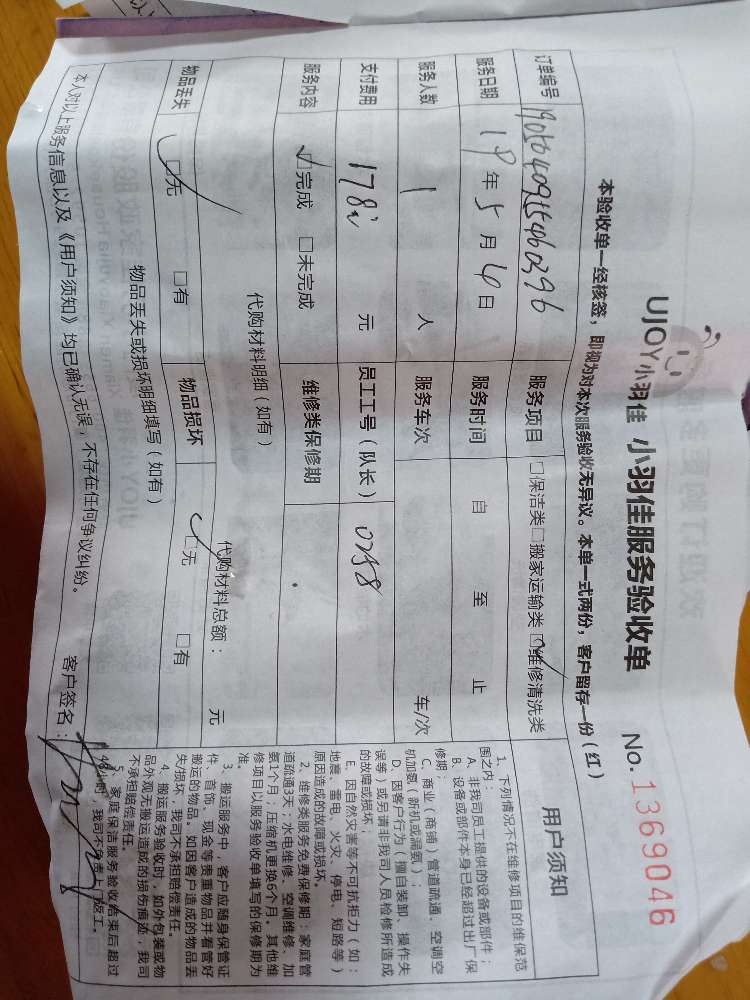 UJOY小羽佳 小羽佳服务验收单 No. 1369046
本验收单一经核签，即视为对本次服务验收无异议。本单一式两份，客户留存一份（红）
订单编号 服务项目 □保洁类 □搬家运输类 □维修清洗类
服务日期 19年5月4日 服务时间 自 至 止
服务人数 1 人 服务车次 车/次
支付费用 178 元 员工工号（队长） 0258
服务内容 □完成 □未完成 维修类保修期
代购材料明细（如有）
代购材料总额： 元
物品丢失 □无 □有 物品损坏 □无 □有
物品丢失或损坏明细填写（如有）
本人对以上服务信息以及《用户须知》均已确认无误，不存在任何争议纠纷。
客户签名：
用户须知
1、下列情况不在维修项目的维保范
围之内：
A、非我司员工提供的设备或部件；
B、设备或部件本身已经超过出厂保
修期；
C、商业（商铺）管道疏通、空调空
机加氨（新机或漏氨）；
D、因客户行为（擅自装卸、操作失
误等）或另请非我司人员检修所造成
的故障或损坏；
E、因自然灾害等不可抗拒力（如：
地震、雷电、水灾、停电、短路等）
原因造成的故障或损坏。
2、维修类服务免费保修期：家庭管
道疏通3天；水电维修、空调维修、加
氨1个月；压缩机更换6个月。其他维
修项目以服务验收单填写的保修期为
准。
3、搬运服务中，客户应随身保管证
件、首饰、现金等贵重物品并看管好
搬运的物品。如因客户造成的物品丢
失/损坏，我司不承担赔偿责任。
4、搬运服务验收时，如外包装或物
品外观无搬运造成的损伤痕迹，我司
不承担赔偿责任。
5、家庭保洁服务验收结束后超过
48小时，我司不负责上门返工。